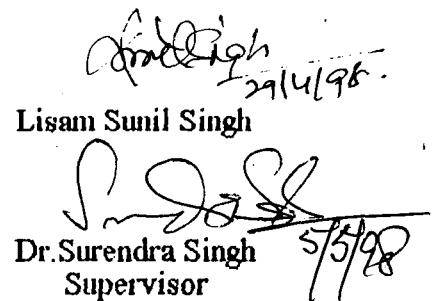 29/4/98.
Lisam Sunil Singh
5/5/98
Dr.Surendra Singh
Supervisor